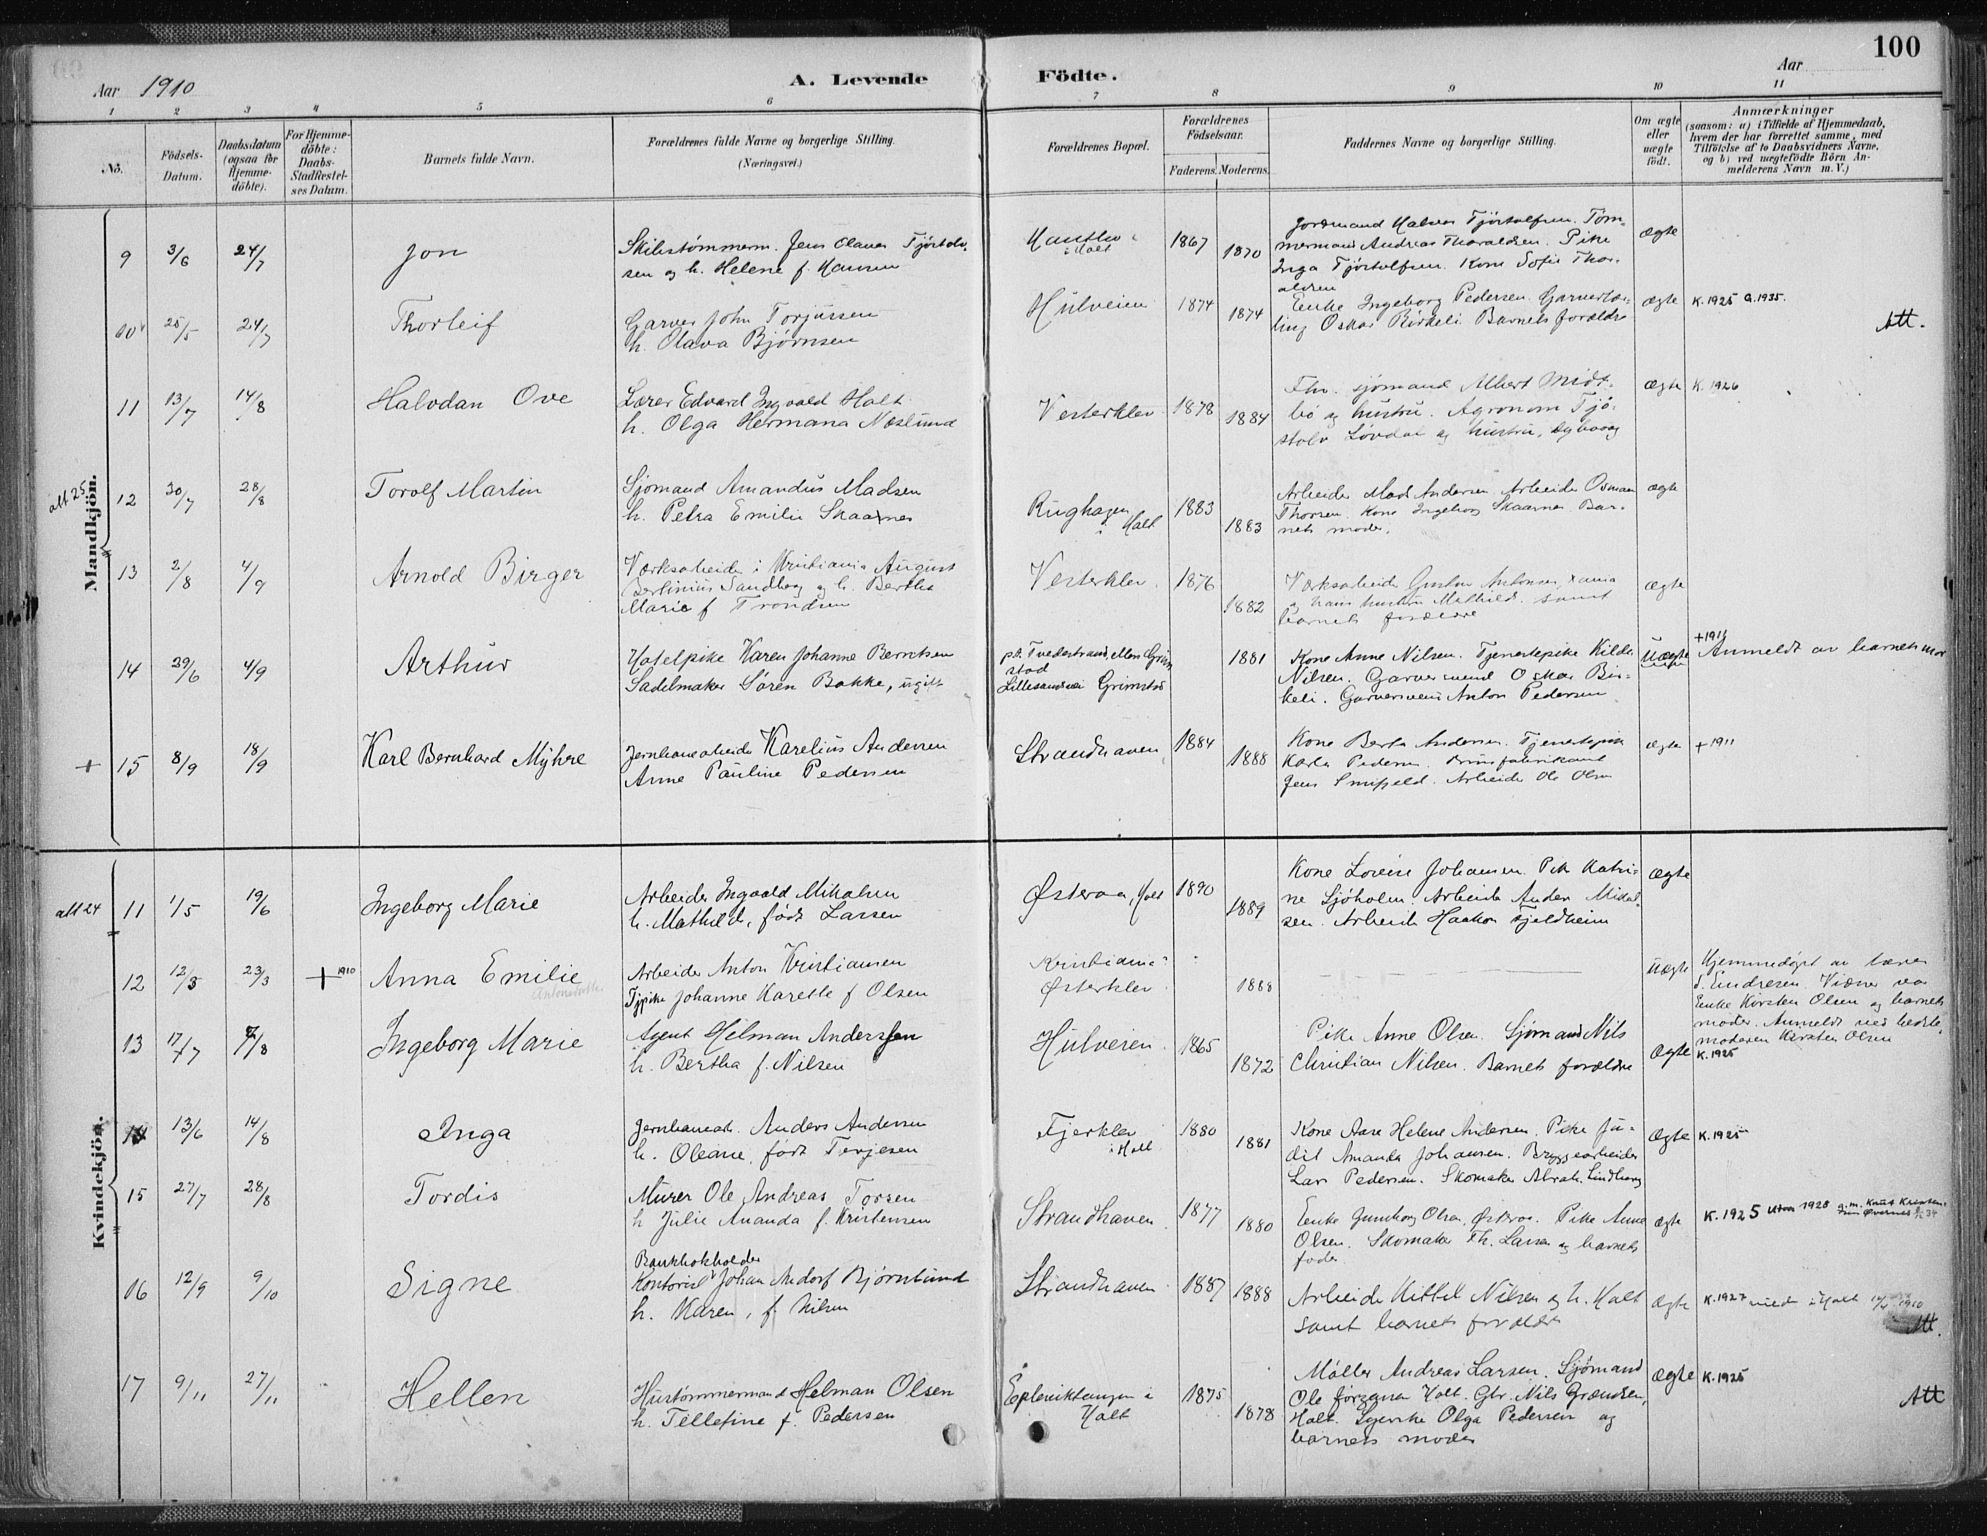 100
Aar 1910
A. Levende Födte.
Aar
1 2 3 4 5 6 7 8 9 10 11
No.
Födsels-Datum.
Daabsdatum (ogsaa for Hjemme-döbte).
For Hjemme-döbte: Daabs-Stadfæstel-ses Datum.
Barnets fulde Navn.
Forældrenes fulde Navne og borgerlige Stilling. (Næringsvei.)
Forældrenes Bopæl.
Forældrenes Födselsaar.
Faderens. Moderens.
Faddernes Navne og borgerlige Stilling.
Om ægte eller uægte födt.
Anmærkninger
(saasom: a) i Tilfælde af Hjemmedaab,
hvem der har forrettet samme, med
Tilföielse af to Daabsvidners Navne,
og b) ved uægtefödte Börn An-
melderens Navn m. V.)
Mandkjön.
alt 25
9 3/6 24/7 Jon
Skibstømmerm. Jens Olaus Tjøstolv
sen og h. Helene f. Hansen
i Holt
1867 1870
Jordmand Halvor Tjöstolfsen. Töm-
mermand Andreas Thoraldsen. Pike
Inga Tjöstolfsen. Kone Sofie Thor-
aldsen
ægte
10 25/5 24/7 Thorleif
Garver John Torjussen
h. Olava Bjørnsen
Hulveien 1874 1874
Enke Ingeborg Pedersen. Garverlær-
ling Oskar Birkeli. Barnets forældre
ægte K. 1925 G. 1935.
Att.
11 13/7 14/8 Halvdan Ove
Lærer Edvard Ingvald Holt
h. Olga Hermana Næslund
Vesterklev 1878 1884
Fhv. sjömand Albert Midt-
bö og hustru. Agronom Tjö-
stolv Løvdal og hustru, Dybvaag
ægte K. 1926
12 30/7 28/8 Torolf Martin
Sjömand Amandus Madsen
h. Petra Emilie Skaarnes
Rughagen i Holt 1883 1883
Arbeider Mads Andersen Arbeider Osman
Thorsen. Kone Ingeborg Skaarnes Bar-
nets moder.
ægte
13 2/8 4/9 Arnold Birger
Værksarbeider i Kristiania August
Bertinius Sandberg og h. Bertha
Marie f Trondsen
Vesterklev 1876 1882
Værksarbeider Gustav Antonsen, Xania
og hans hustru Mathilde. samt
barnets forældre
ægte
14 29/6 4/9 Arthur
Hotelpike Karen Johanne Berntsen
Sadelmaker Søren Bakke, ugift
p.t. Tvedestrand, ellers Grim
stad
Lillesandsvei Grimstad
1881
Kone Anne Nilsen. Tjenestepike Hilda
Nilsen. Garversvend Oskar Bir-
keli. Garversvend Anton Pedersen
Uægte
+1911
Anmeldt av barnets mor
+ 15 8/9 18/9 Karl Bernhard Myhre
Jernbanearbeider Karelius Andersen
Anne Pauline Pedersen
Strandhaven 1884 1888
Kone Berta Andersen. Tjenestepike
Karla Pedersen. Brusfabrikant
Jens Smifjeld. Arbeider Ole Olsen
ægte +1911
Kvindekjön.
alt 24
11 1/5 19/6 Ingeborg Marie
Arbeider Ingvald Mikalsen
h. Mathilde, født Larsen
Østeraa, Holt 1890 1889
Kone Lovise Johansen Pike Katri-
ne Sjöholm. Arbeider Anders Mikal-
sen. Arbeider Haakon Fjeldheim
ægte
12 12/3 23/3 + 1910 Anna Emilie
Arbeider Anton Kristiansen
Tjpike Johanne Karette f Olsen
Kristiania
Østerklev
1888
Uægte
Hjemmedøpt av lærer
S. Endresen. Vidner var
Enke Kirsten Olsen og barnets
moder. Anmeldt ved bedste-
moderen Kirsten Olsen
13 17/7 7/8 Ingeborg Marie
Agent Helman Anderssen
h. Bertha f. Nilsen
Hulveien 1865 1872
Pike Anne Olsen. Sjømand Nils
Christian Nilsen. Barnets forældre
Ægte K. 1925
14 13/6 14/8 Inga
Jernbanearb. Anders Andersen
h. Oleane, født Terjesen
Fjerklev i Holt 1880 1881
Kone Aase Helene Andersen. Pike Ju-
dit Amanda Johansen. Bryggearbeider
Lars Pedersen. Skomaker Abrah. Lindberg
Ægte K. 1925
15 27/7 28/8 Tordis
Murer Ole Andreas Torsen
h Julie Ananda f. Kristensen
Strandhaven 1877 1880
Enke Gunborg Olsen, Østeraa. Pike Anne
Olsen. Skomaker Th. Larsen og barnets
fader
ægte K. 1925
16 12/9 9/10 Signe
Bankbokholder
Kontorist Johan Andorf Bjørnlund
h. Karen, f. Nilsen
Strandhaven 1887 1888
Arbeider Kittel Nilsen og h. Holt
samt barnets forældre
ægte K. 1927 viet i Holt 1910
Att.
17 9/11 27/11 Hellen
Hustømmermand Helman Olsen
h. Tellefine f. Pedersen
Eepleviktangen i
Holt
1875 1878
Møller Andreas Larsen. Sjømand
Ole Holt. Gbr. Nils Grændsen,
Holt. Syerske Olga Pedersen og
barnets moder
ægte K. 1925
Att